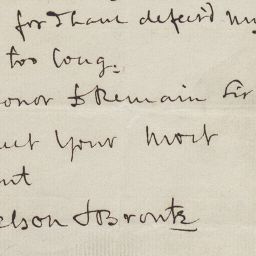 for I have defer'd my
too long.
onor to Remain Sir
Your Most
elson & Bronte